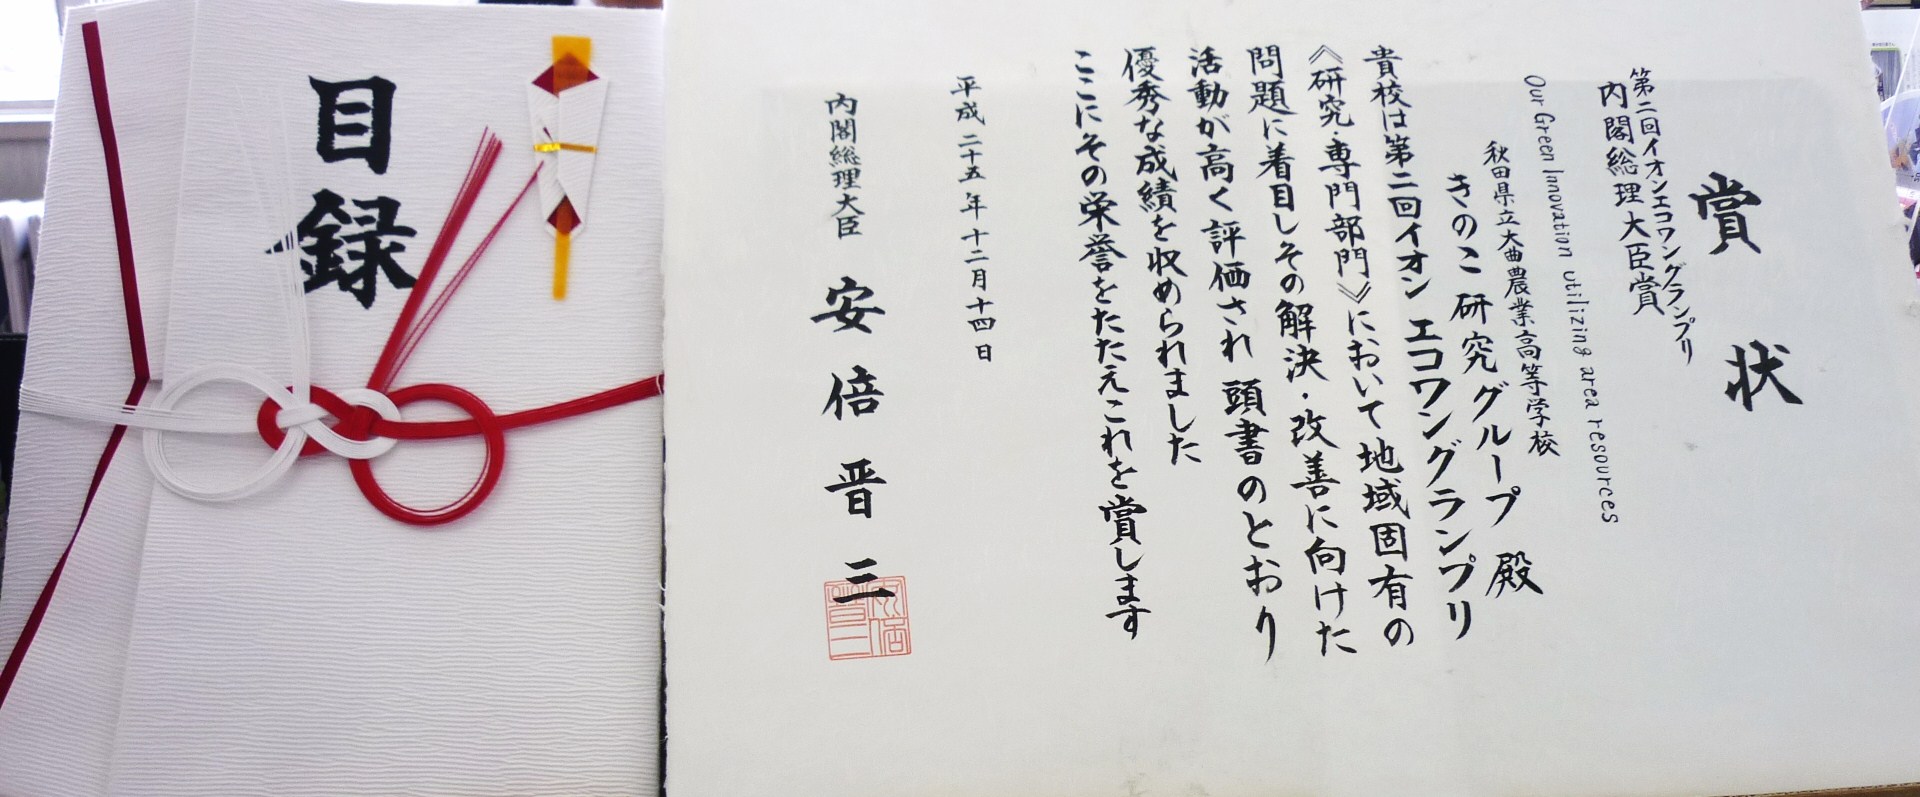 目録
賞状
第二回イオンエコワングランプリ
内閣総理大臣賞
Our Green Innovation utilizing area resources
秋田県立大曲農業高等学校
きのこ研究グループ 殿
貴校は第二回イオン エコワングランプリ
《研究・専門部門》において地域固有の
問題に着目しその解決・改善に向けた
活動が高く評価され 頭書のとおり
優秀な成績を収められました
ここにその栄誉をたたえこれを賞します
平成二十五年十二月十四日
内閣総理大臣 安倍晋三
安倍晋三